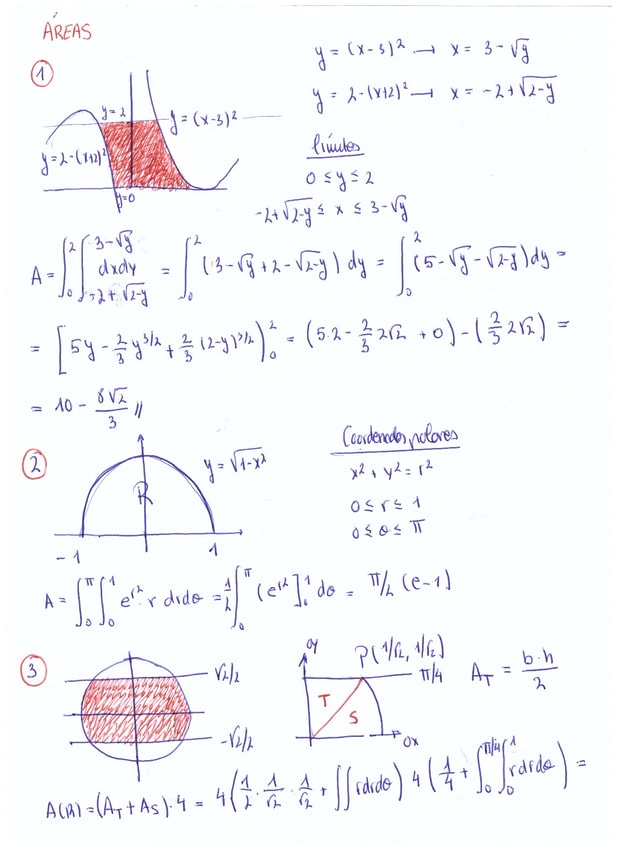 ÁREAS
1
y = (x-3)² → x = 3 - √y
y = 2-(x+2)² → x = -2+√2-y
y = 2
y = (x-3)²
y = 2-(x+2)²
y=0
límites
0 ≤ y ≤ 2
-2+√2-y ≤ x ≤ 3-√y
A = ∫₀² ∫_{-2+√2-y}^{3-√y} dxdy = ∫₀² (3-√y+2-√2-y) dy = ∫₀² (5-√y-√2-y) dy =
= [5y - 2/3 y^3/2 + 2/3 (2-y)^3/2)₀² = (5·2 - 2/3 2√2 + 0) - (2/3 2√2) =
= 10 - 8√2/3 //
2
y = √1-x²
R
-1 1
Coordenadas polares
x² + y² = r²
0 ≤ r ≤ 1
0 ≤ θ ≤ π
A = ∫₀^π ∫₀¹ e^r² r drdθ = 1/2 ∫₀^π (e^r²]₀¹ dθ = π/2 (e-1)
3
√2/2
-√2/2
oy
P(1/√2, 1/√2)
π/4
T
S
Ox
A_T = b·h/2
A(R) = (A_T + A_S)·4 = 4(1/2 · 1/√2 · 1/√2 + ∫∫ rdrdθ) 4 (1/4 + ∫₀^π/4 ∫₀¹ rdrdθ) =